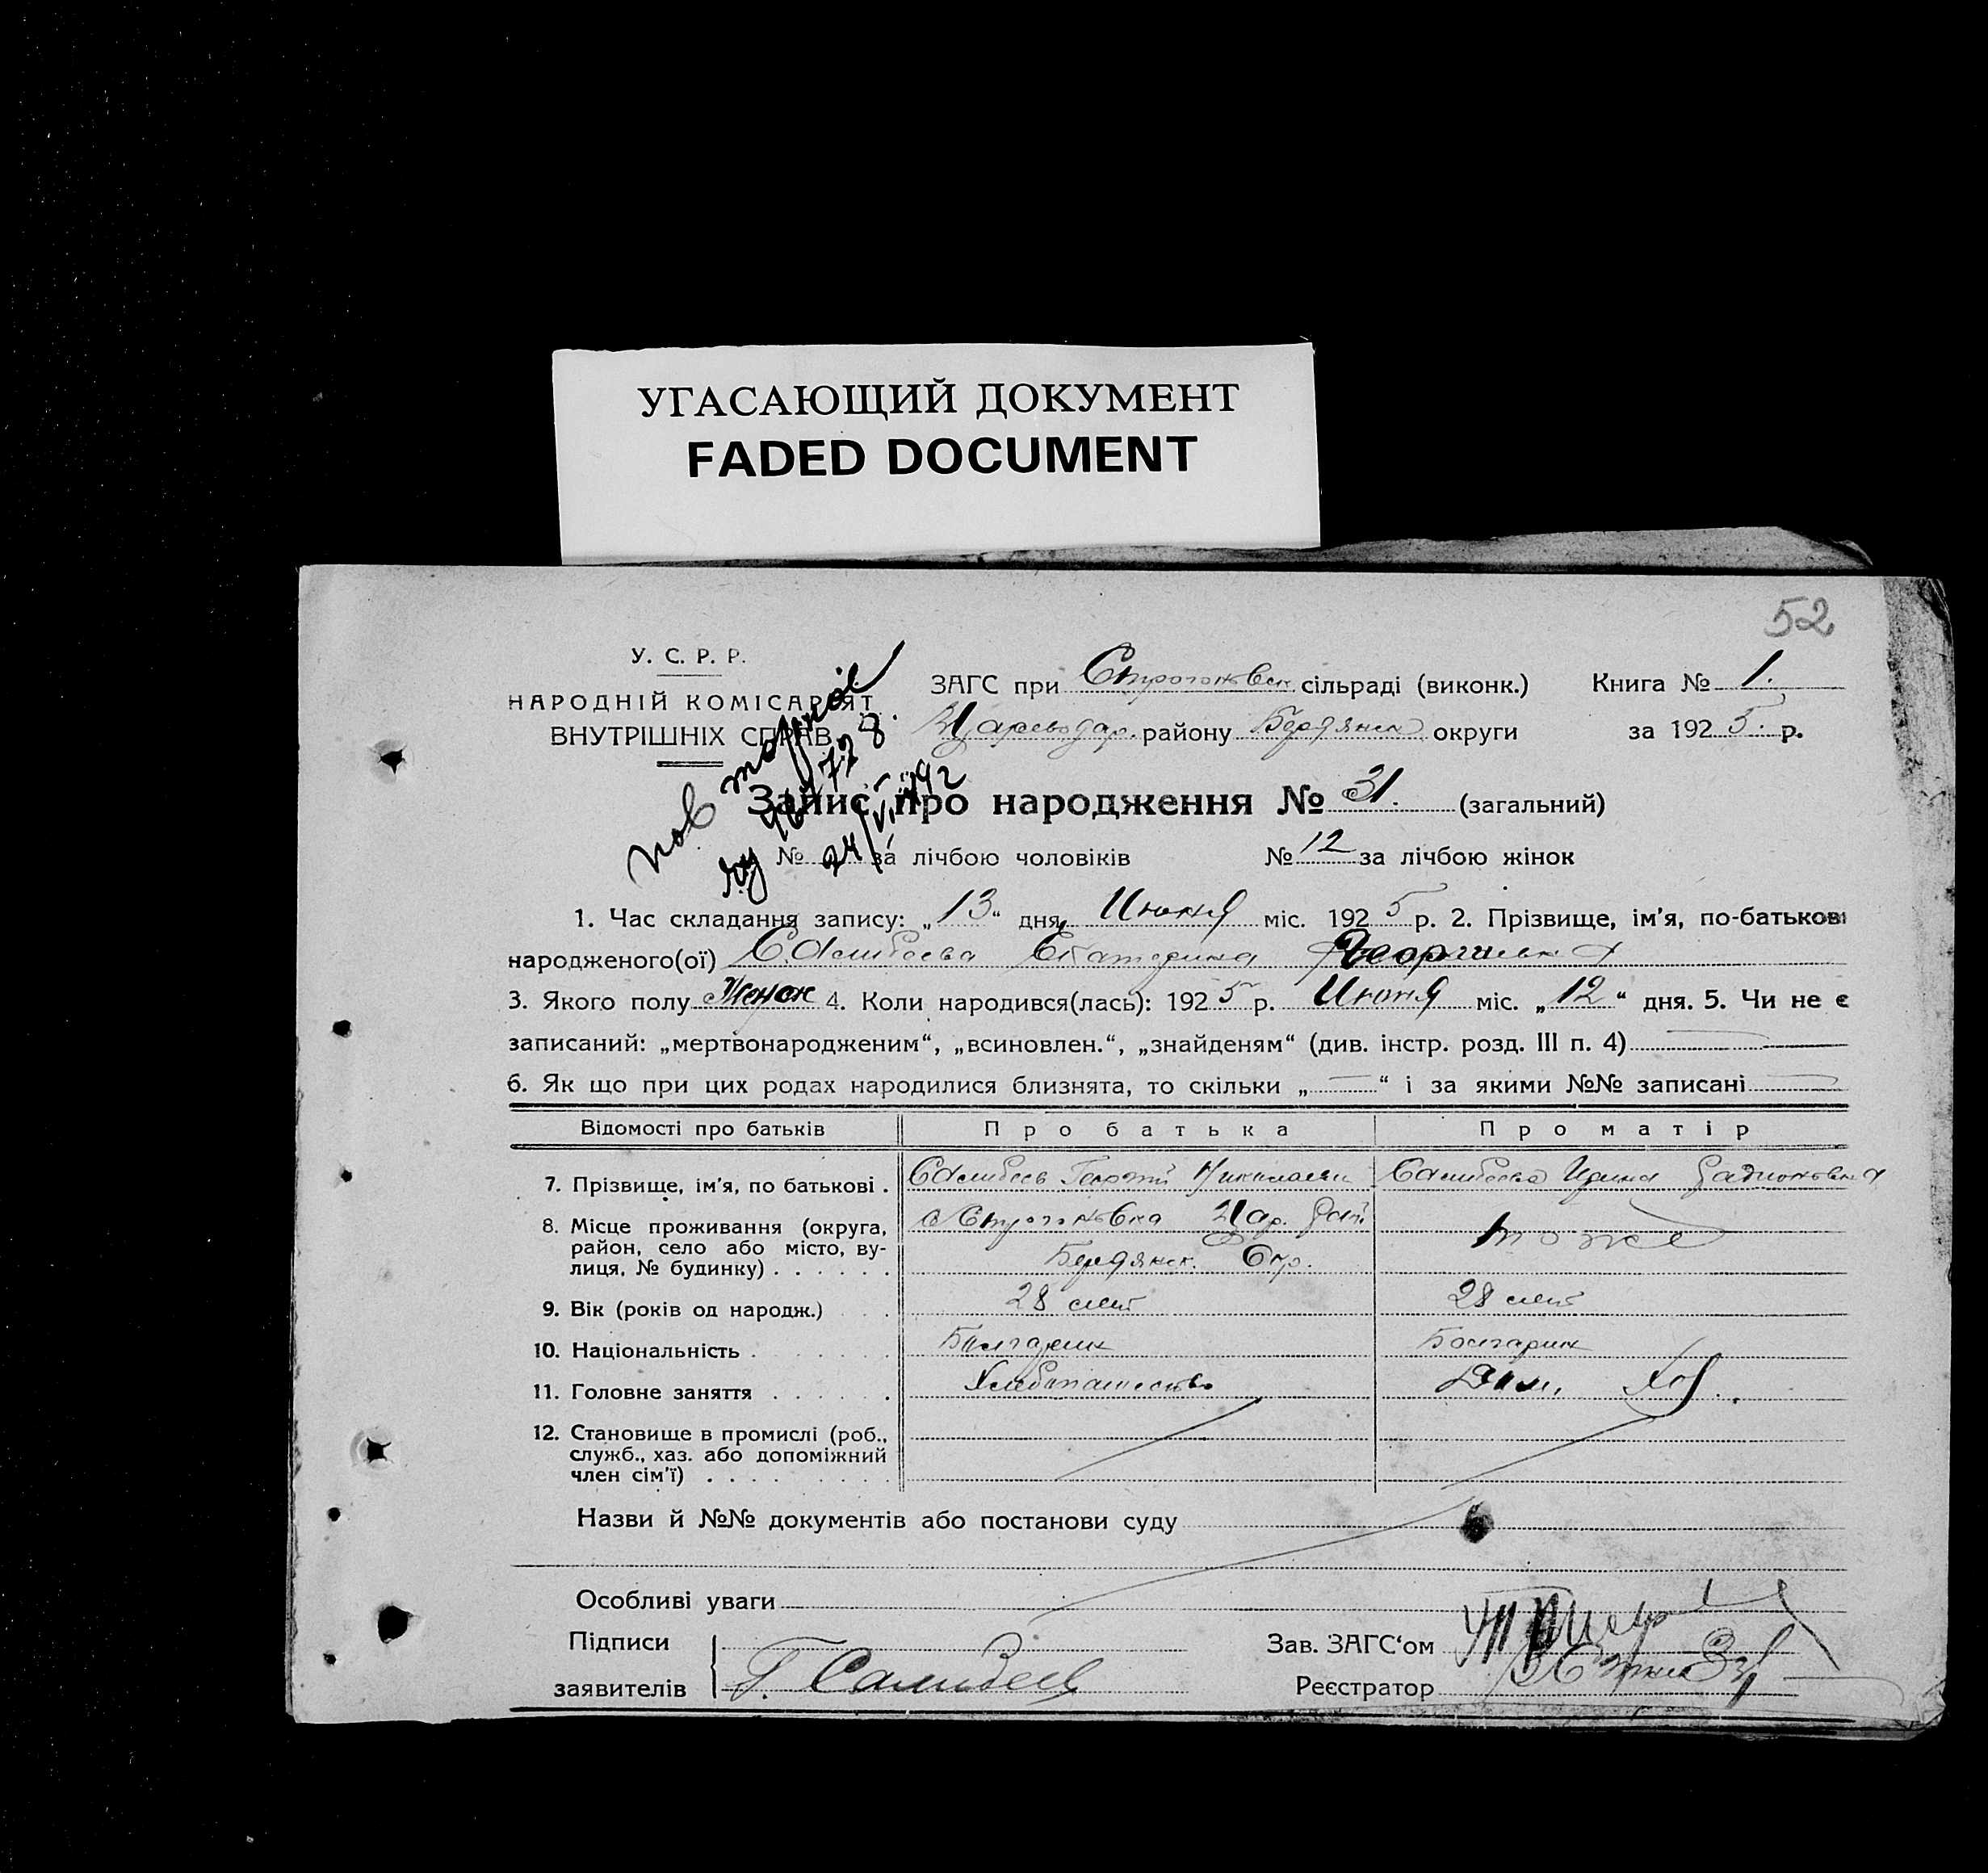 УГАСАЮЩИЙ ДОКУМЕНТ
FADED DOCUMENT
52
У. С. Р. Р.
НАРОДНІЙ КОМІСАРІЯТ
ВНУТРІШНІХ СПРАВ
ЗАГС при Строгоновск сільраді (виконк.) Книга № 1.
Цареводар. району Бердянск округи за 1925 р.
Запис про народження № 31. (загальний)
№ за лічбою чоловіків № 12 за лічбою жінок
пов
24/VI
1. Час складання запису: „13“ дня, Июня міс. 1925 р. 2. Прізвище, ім’я, по-батькові
народженого(ої) Салибеева Екатерина Георгиевна
3. Якого полу Женск 4. Коли народився(лась): 1925 р. Июня міс. „12“ дня. 5. Чи не є
записаний: „мертвонародженим“, „всиновлен.“, „знайденям“ (див. інстр. розд. III п. 4)
6. Як що при цих родах народилися близнята, то скільки „—“ і за якими №№ записані
Відомості про батьків Про батька Про матір
7. Прізвище, ім’я, по батькові . Салибеев Георгій Николаеви Салибеева Ирина Радионовна
8. Місце проживання (округа, район, село або місто, вулиця, № будинку) . . . . . . с Строгоновка Цар. Рай. Бердянск. Окр. тоже
9. Вік (років од народж.) . 28 лет 28 лет
10. Національність . . . . . . . Болгарин Болгарин
11. Головне заняття . . . . . . Хлебопашество Дом. Хоз.
12. Становище в промислі (роб., служб., хаз. або допоміжний член сім’ї) . . . . . . . . .
Назви й №№ документів або постанови суду
Особливі уваги
Підписи
заявителів Г. Салибеев
Зав. ЗАГС‘ом
Реєстратор